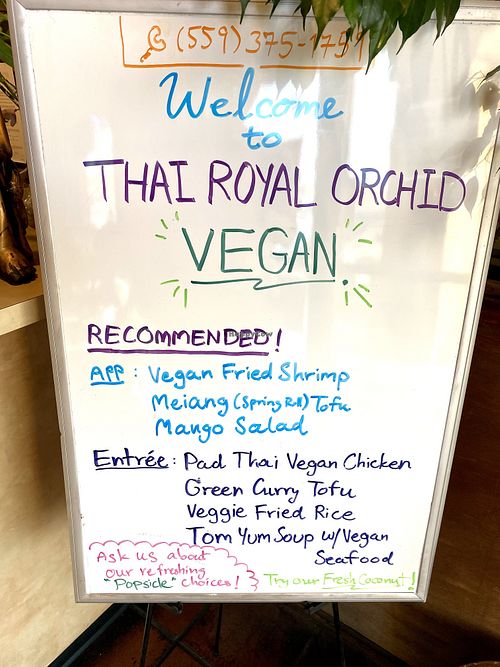 (559) 375-1759
Welcome
to
THAI ROYAL ORCHID
VEGAN.
RECOMMENDED!
APP : Vegan Fried Shrimp
Meiang (Spring Roll) Tofu
Mango Salad
Entrée : Pad Thai Vegan Chicken
Green Curry Tofu
Veggie Fried Rice
Tom Yum Soup w/Vegan
Seafood
Ask us about
our refreshing
"Popside" choices!
Try our Fresh Coconut!